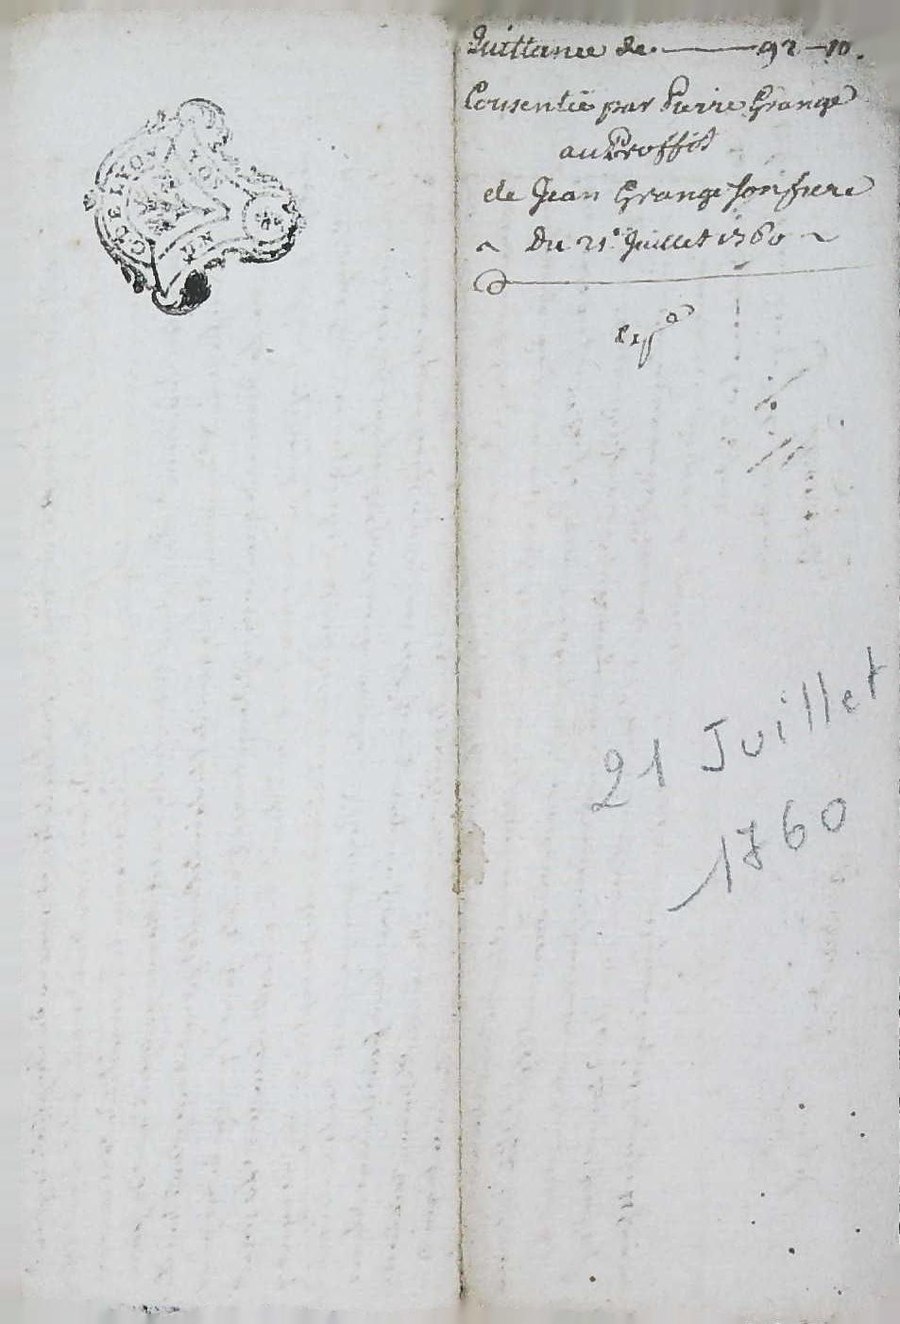 G DE LYON
Quittance de ——— 92 – 10.
Consentie par Pierre Grange
au Proffit
de Jean Grange son frere
~ Du 21e Juillet 1760 ~
21 Juillet
1760